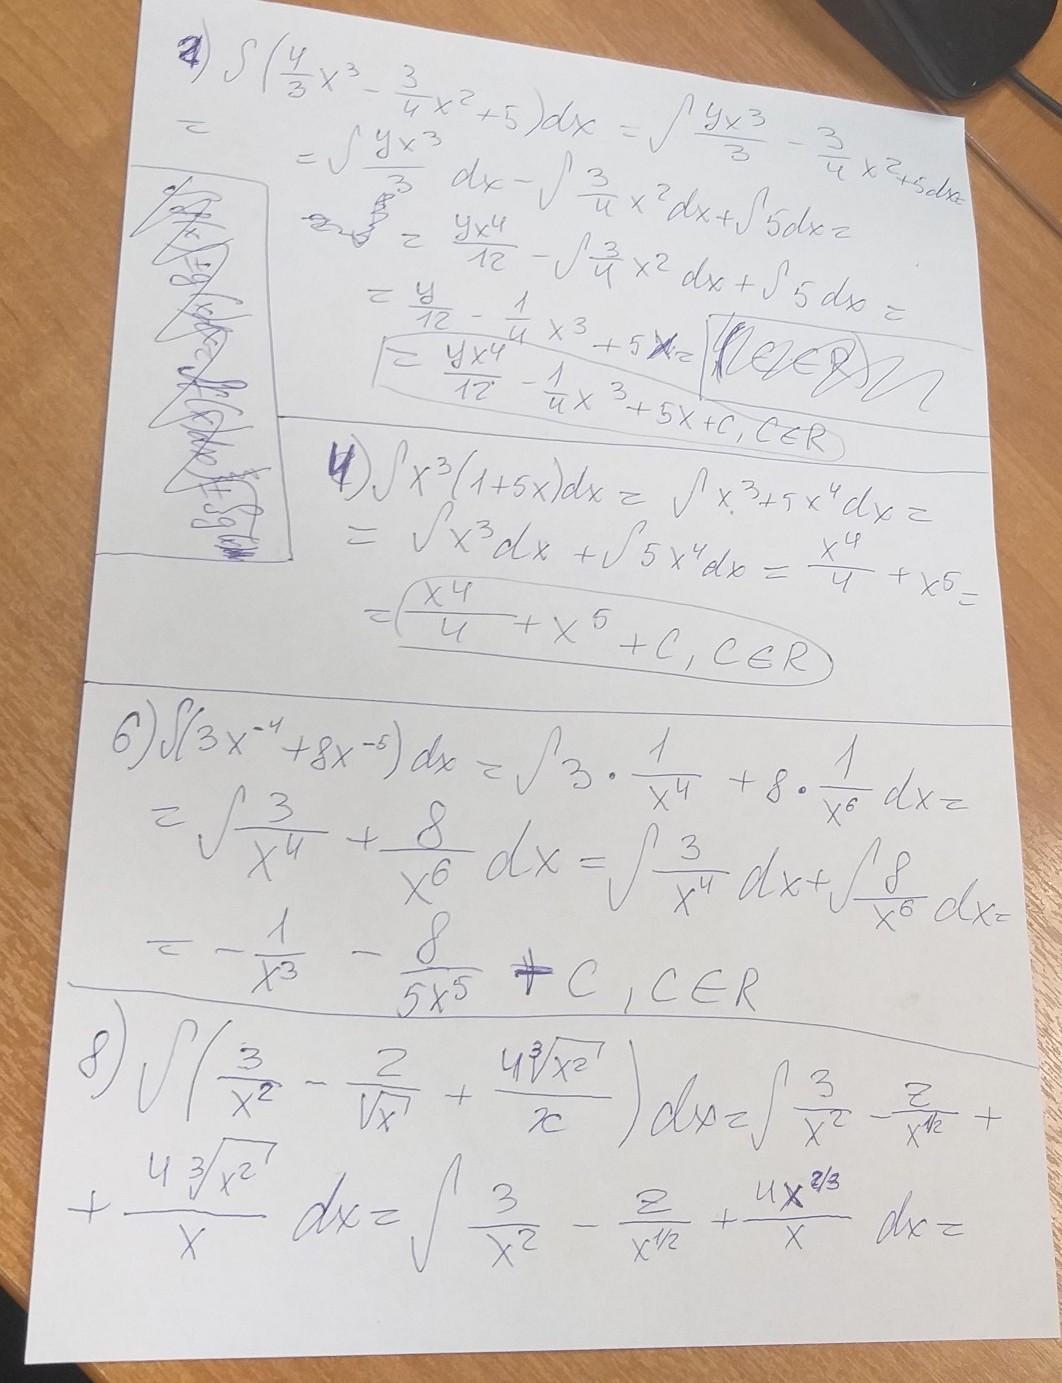 2) ∫(4/3 x³ - 3/4 x² + 5)dx = ∫ 4x³/3 - 3/4 x² + 5dx =
=
= ∫ 4x³/3 dx - ∫ 3/4 x² dx + ∫ 5dx =
= 4x⁴/12 - ∫ 3/4 x² dx + ∫ 5 dx =
= 4/12 - 1/4 x³ + 5x =
= 4x⁴/12 - 1/4 x³ + 5x + C, C∈R
4) ∫x³(1+5x)dx = ∫ x³+5x⁴dx =
= ∫x³dx + ∫5x⁴dx = x⁴/4 + x⁵ =
= x⁴/4 + x⁵ + C, C∈R
6) ∫(3x⁻⁴+8x⁻⁵)dx = ∫3 · 1/x⁴ + 8 · 1/x⁶ dx =
= ∫ 3/x⁴ + 8/x⁶ dx = ∫ 3/x⁴ dx + ∫ 8/x⁶ dx =
= - 1/x³ - 8/5x⁵ + C, C∈R
8) ∫(3/x² - 2/√x + 4∛x²/x)dx = ∫ 3/x² - 2/x^1/2 +
+ 4∛x²/x dx = ∫ 3/x² - 2/x^1/2 + 4x^2/3/x dx =